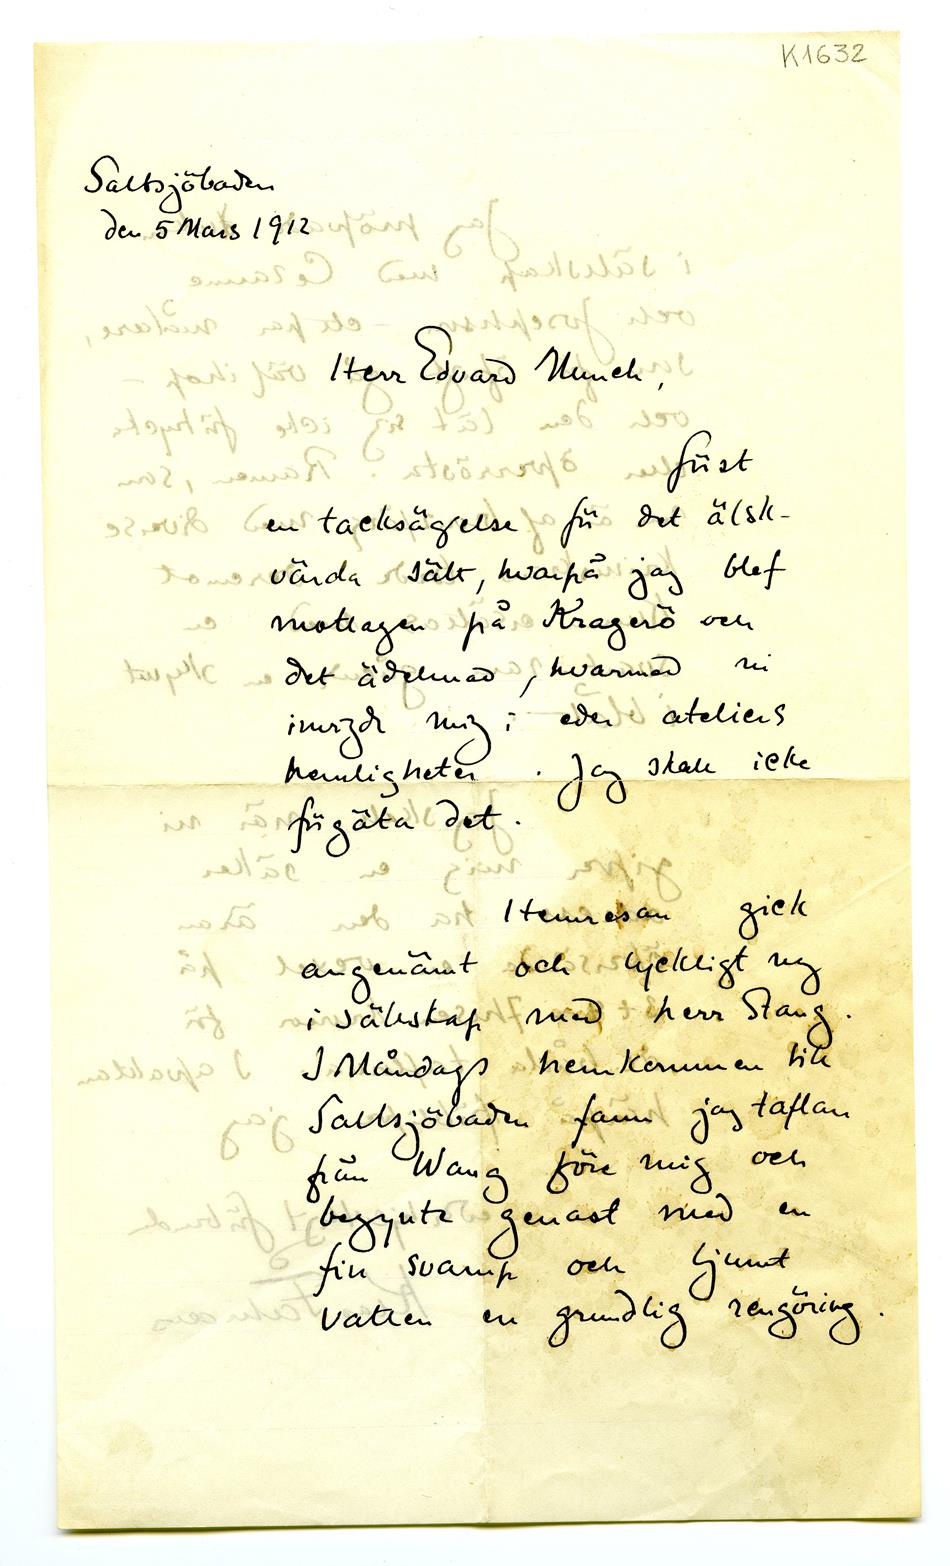 K1632
Saltsjöbaden
den 5 Mars 1912
Herr Edvard Munch,
först
en tacksägelse för det älsk-
värda sätt, hvarpå jag blef
mottagen på Kragerö och
det ädelmod, hvarmed ni
invigde mig i eder ateliers
hemligheter. Jag skall icke
förgäta det.
Hemresan gick
angenämt och lyckligt nog
i sällskap med herr Stang.
I Måndags hemkommen till
Saltsjöbaden fann jag taflan
från Wang före mig och
begynte genast med en
fin svamp och ljumt
vatten en grundlig rengöring.